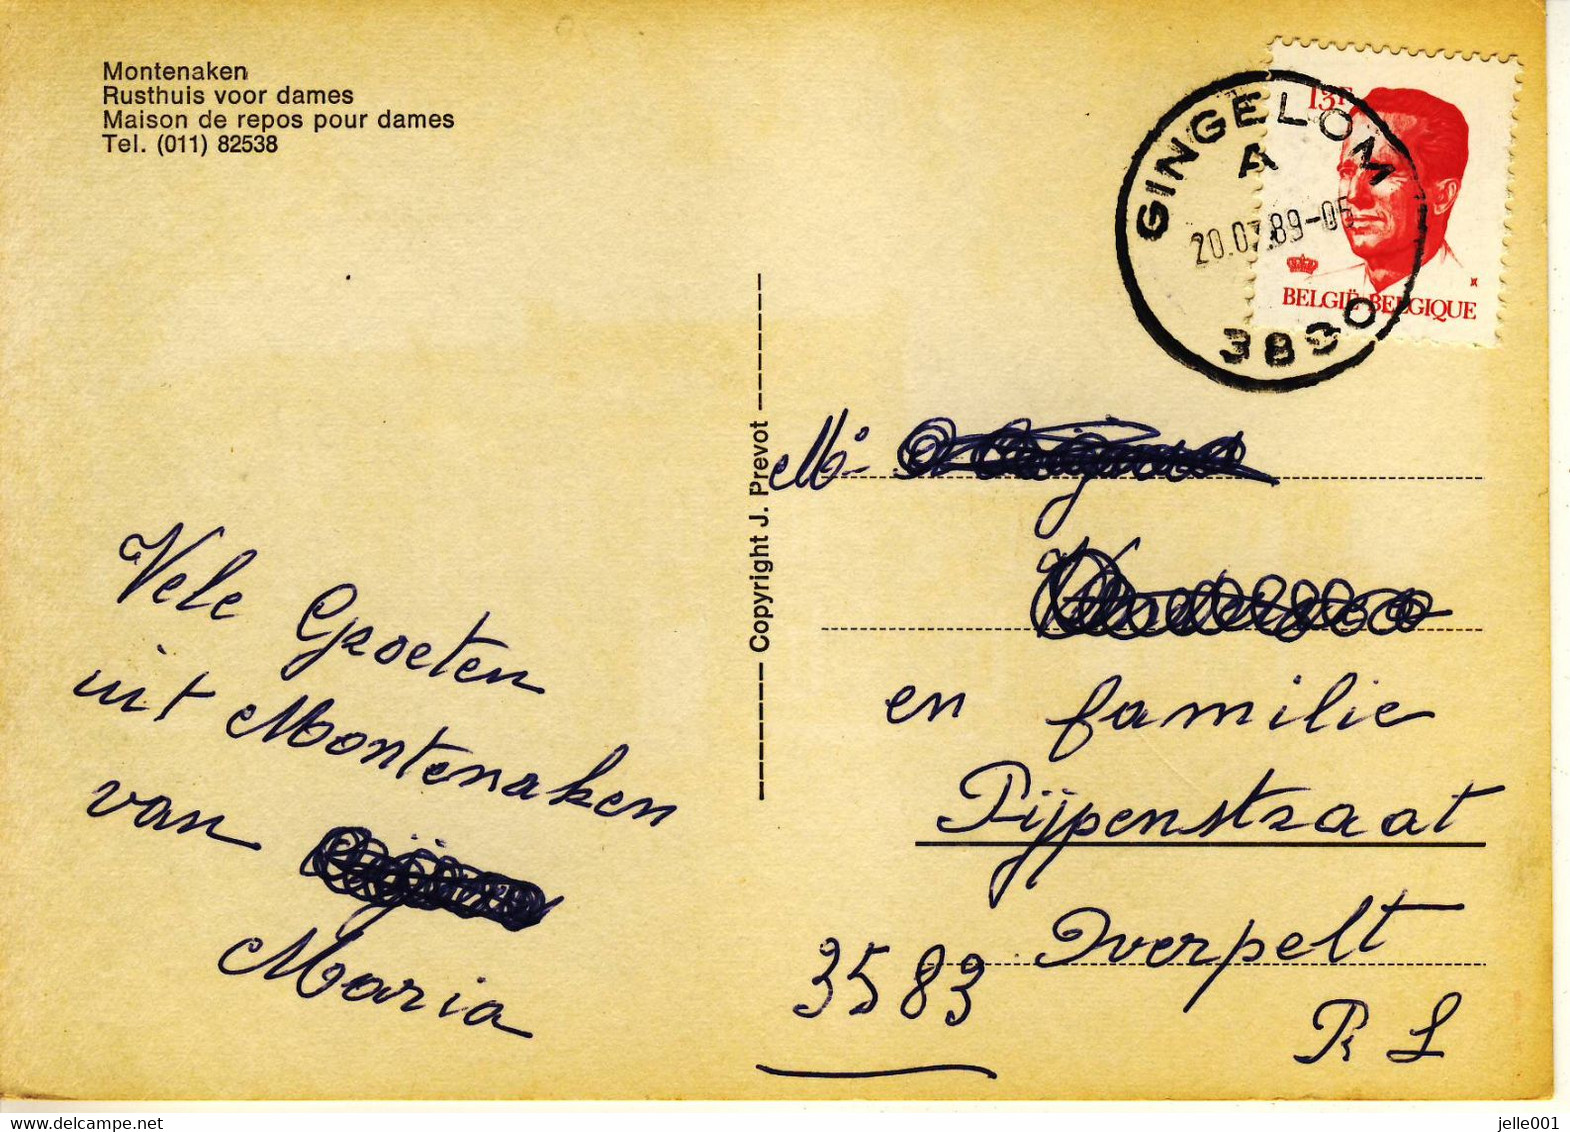 Montenaken
Rusthuis voor dames
Maison de repos pour dames
Tel. (011) 82538
GINGELOM
A
20.07.89-05
3890
13F
BELGIË-BELGIQUE
Copyright J. Prevot
Vele Groeten
uit Montenaken
van
Maria
Mr
en familie
Pijpenstraat
3583 Overpelt
jelle001